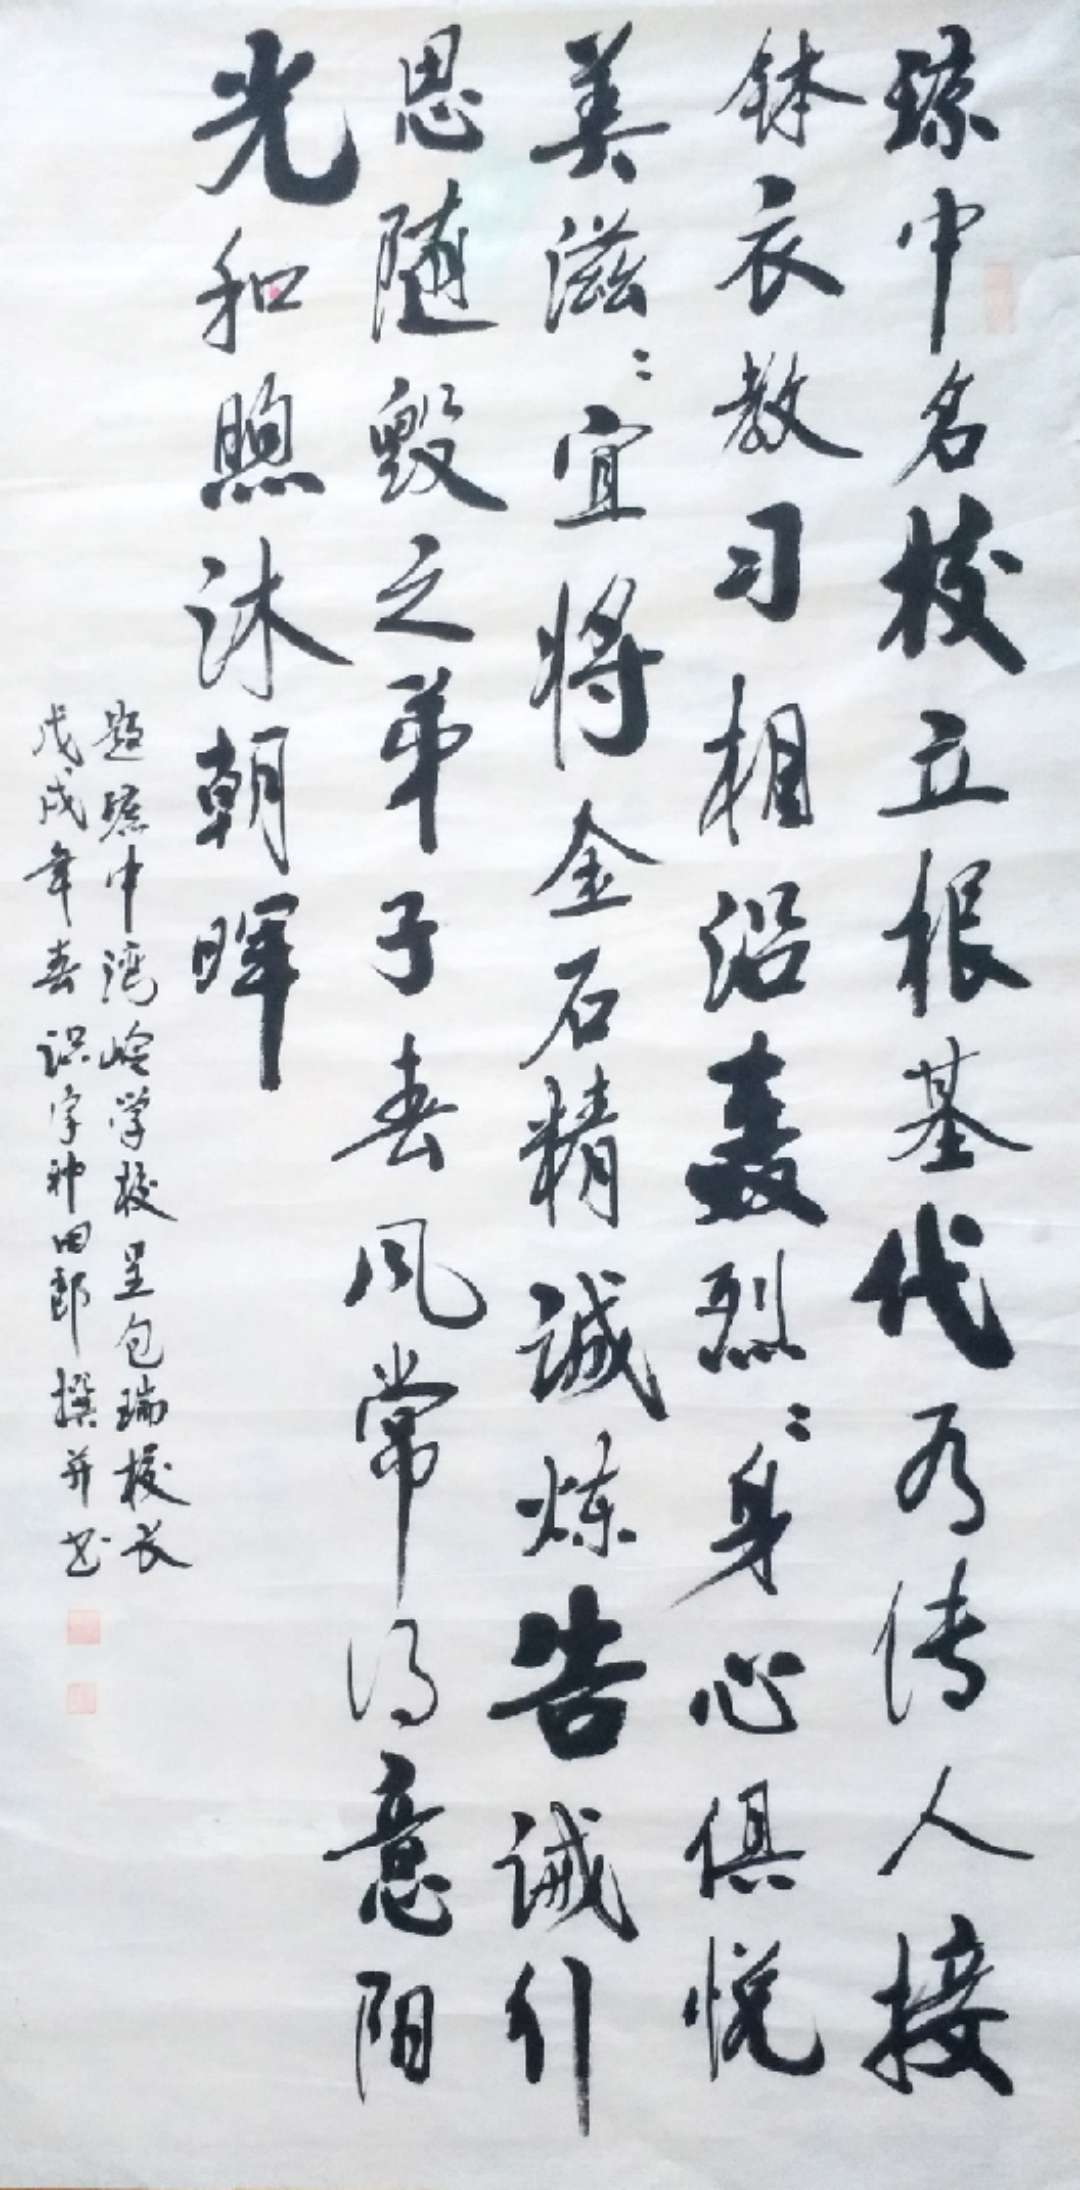 琼中名校立根基代有传人接
钵衣教习相沿轰烈〻身心俱悦
美滋〻宜将金石精诚炼告诫引
思随毁之弟子春风常得意阳
光和煦沐朝晖
题琼中湾岭学校呈包瑞校长
戊戌年春识字神田郎撰并书